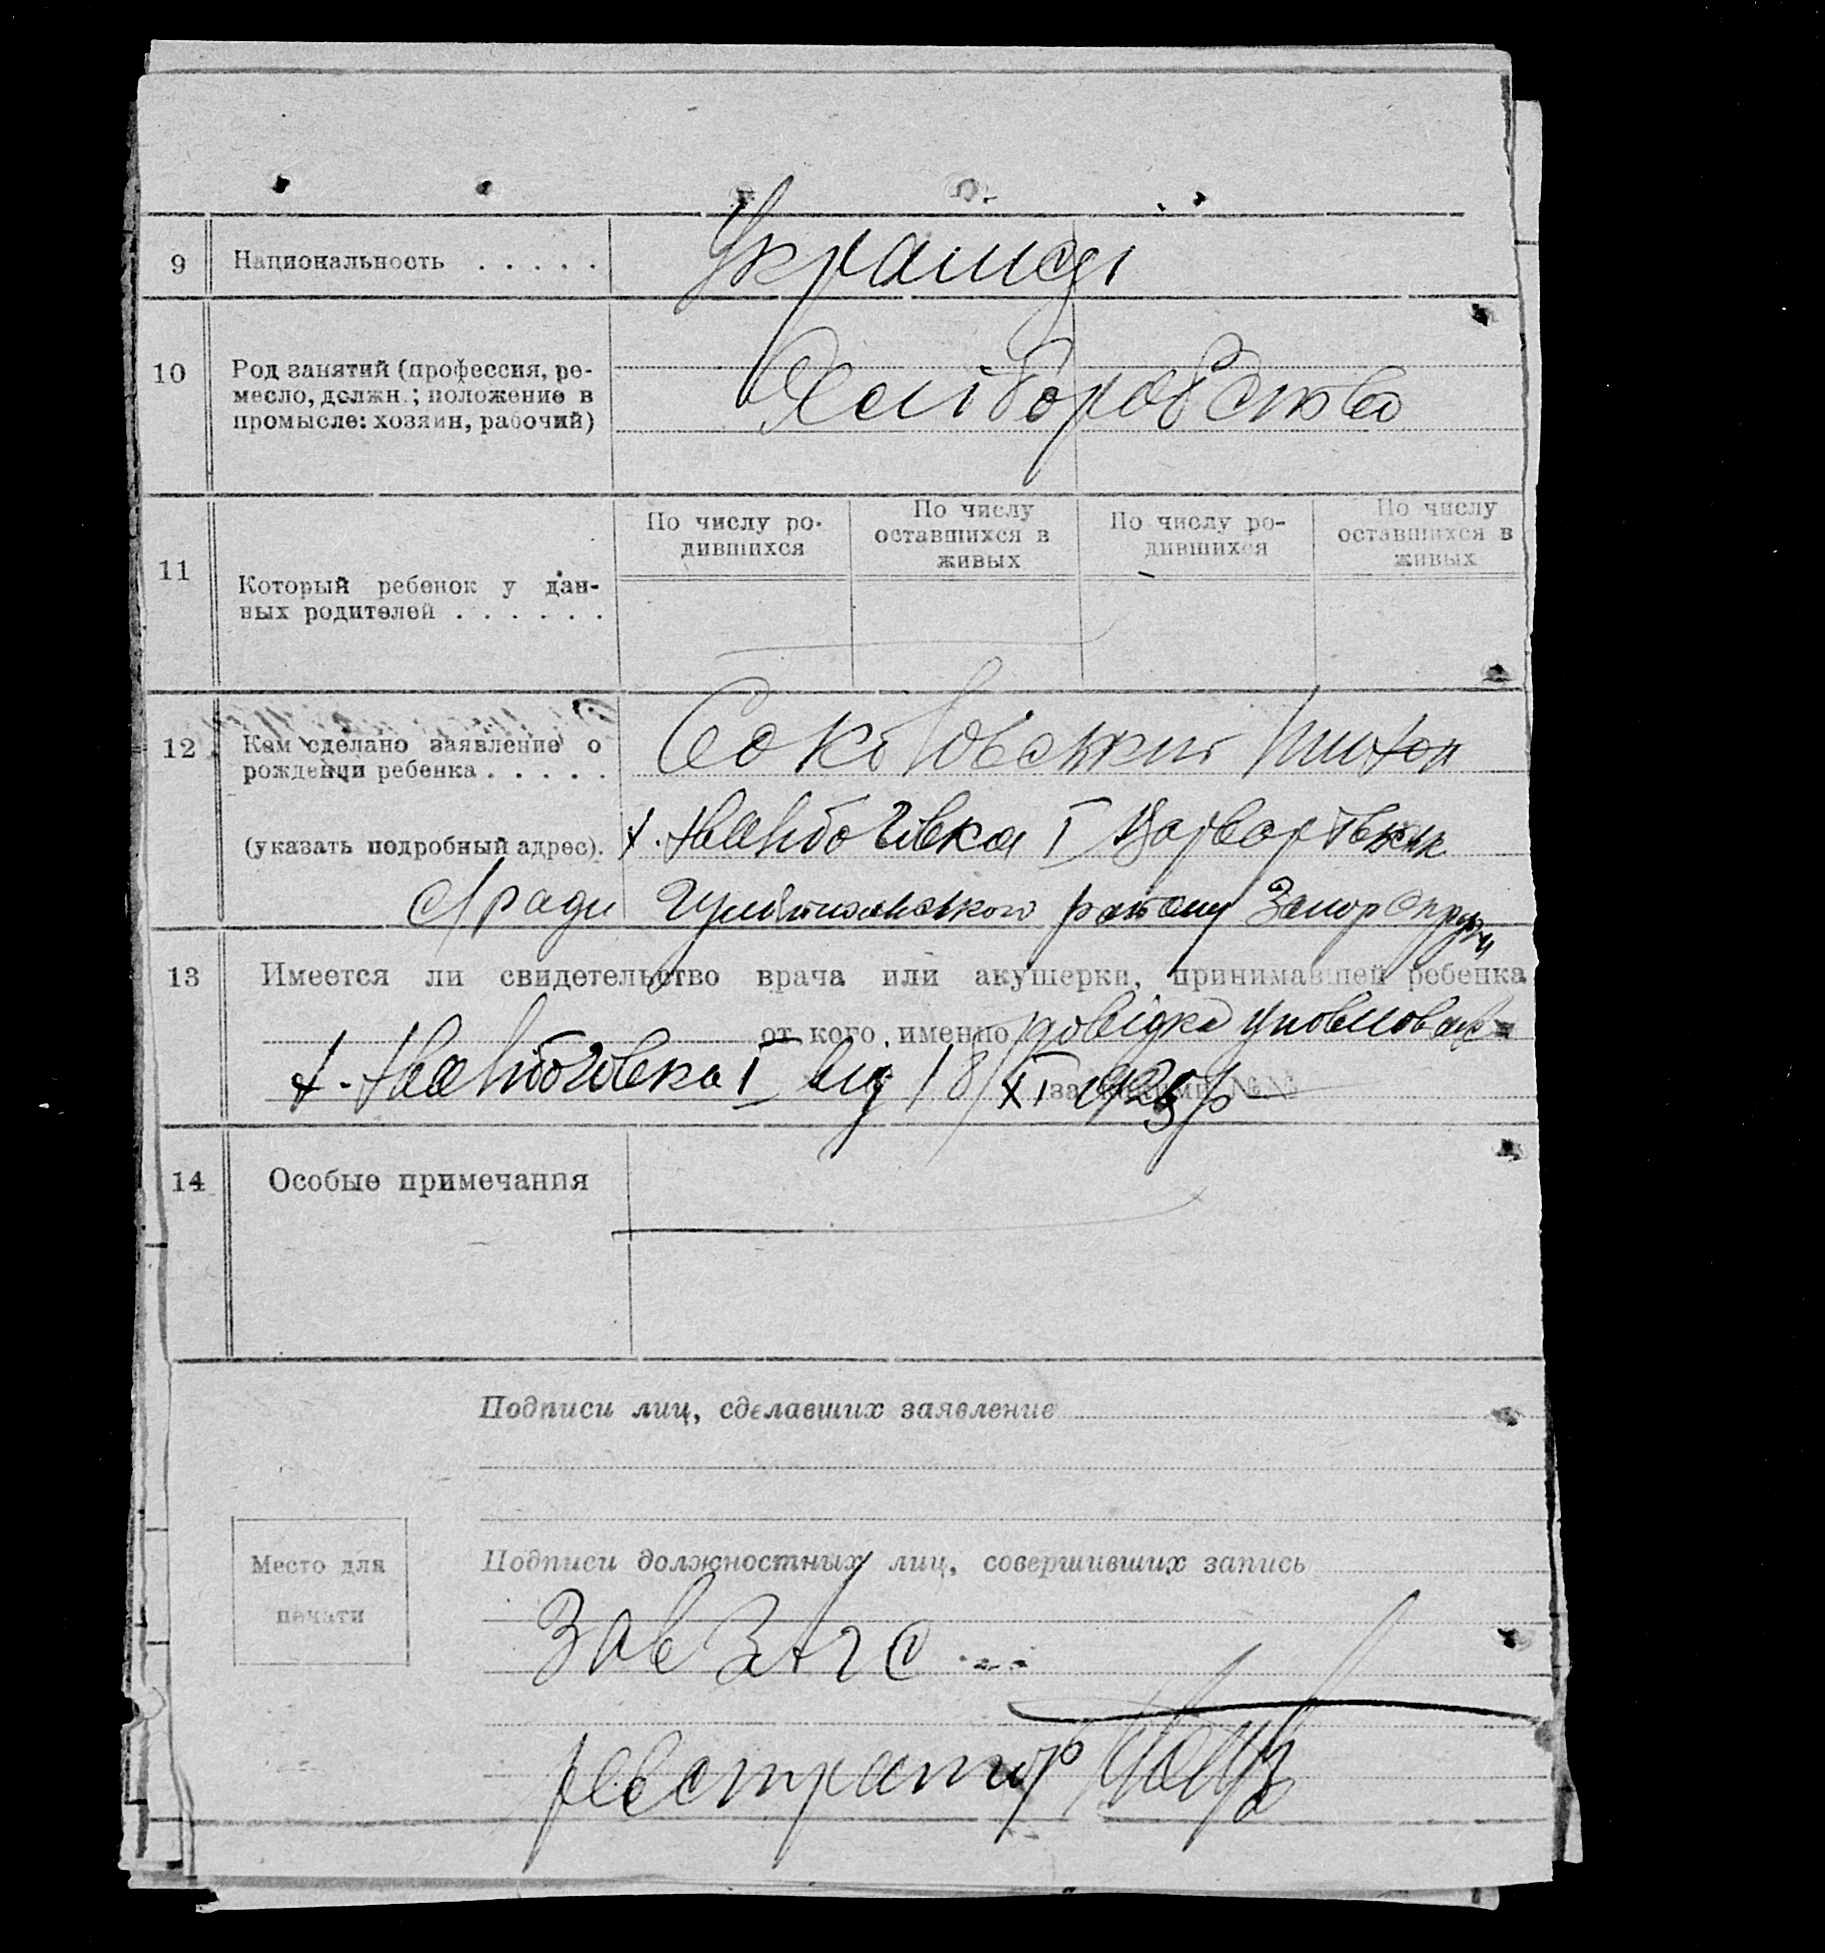 9 Национальность . . . . . Українці
10 Род занятий (профессия, ре-
месло, должн.; положение в
промысле: хозяин, рабочий)
Хліборобство
11 Который ребенок у дан-
ных родителей . . . . . .
По числу ро-
дившихся
По числу
оставшихся в
живых
По числу ро-
дившихся
По числу
оставшихся в
живых
12 Кем сделано заявление о
рождении ребенка . . . . .
(указать подробный адрес).
Тихон
х. І
с/ради району Запор округи
13 Имеется ли свидетельство врача или акушерки, принимавшей ребенка
от кого именно довідка уповноваж
х. І від 18/ХІ за №№
14 Особые примечания
Подписи лиц, сделавших заявление
Место для
печати
Подписи должностных лиц, совершивших запись
Зав ЗАГС
реєстратор